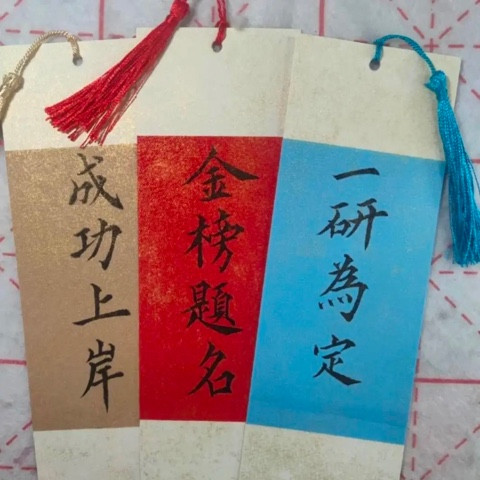 成功上岸
金榜題名
一研為定